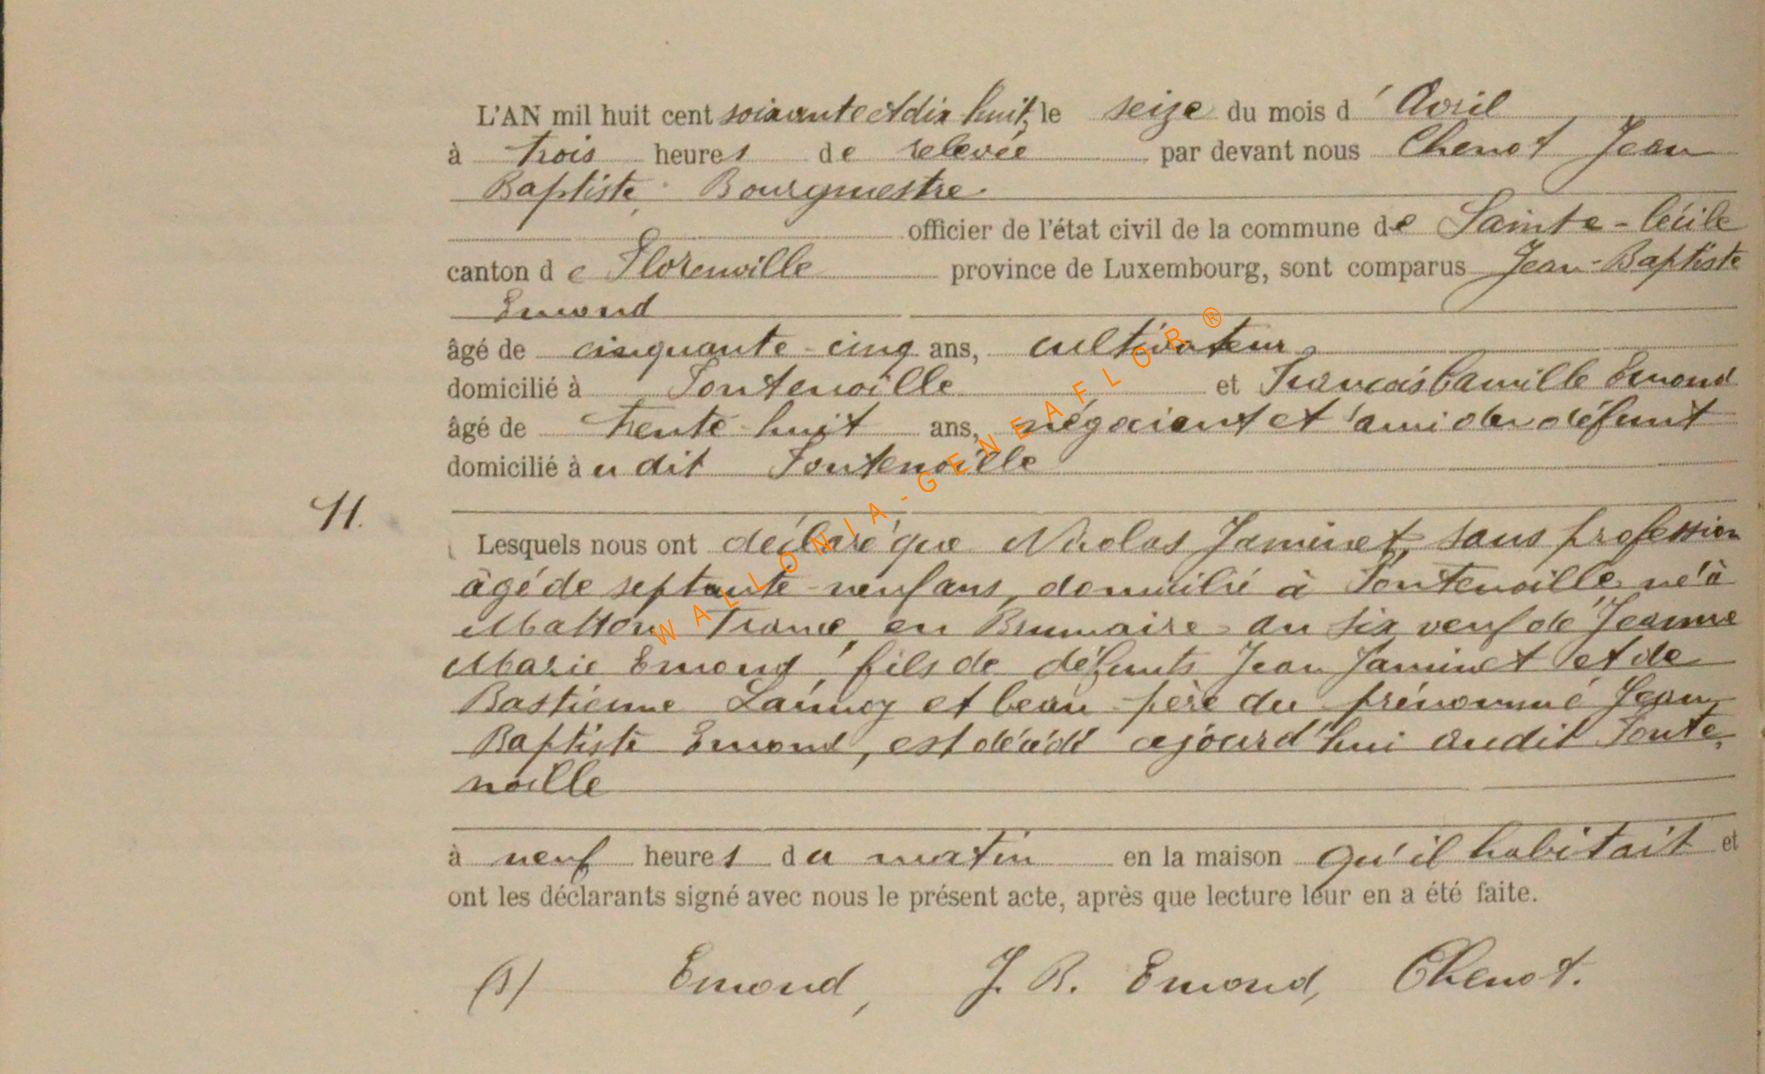 L'AN mil huit cent soixante et dix huit, le seize du mois d'Avril
à trois heures de relevée par devant nous Chenot Jean
Baptiste, Bourgmestre.
officier de l'état civil de la commune de Sainte-Cécile
canton de Florenville province de Luxembourg, sont comparus Jean-Baptiste
Emond
âgé de cinquante-cinq ans, cultivateur
domicilié à Fontenoille et François Camille Emond
âgé de trente huit ans, négociant et ami du défunt
domicilié à udit Fontenoille
11.
Lesquels nous ont déclaré que Nicolas Jaminet, sans profession
âgé de septante-neuf ans, domicilié à Fontenoille, né à
Matton France, en Brumaire an six, veuf de Jeanne
Marie Emond, fils de défunts Jean Jaminet et de
Bastienne Launoy et beau-père du prénommé Jean
Baptiste Emond, est décédé cejourd'hui audit Fonte,
noille
à neuf heures du matin en la maison qu'il habitait et
ont les déclarants signé avec nous le présent acte, après que lecture leur en a été faite.
(s) Emond, J. B. Emond, Chenot.
WALLONIA-GENEAFLOR®